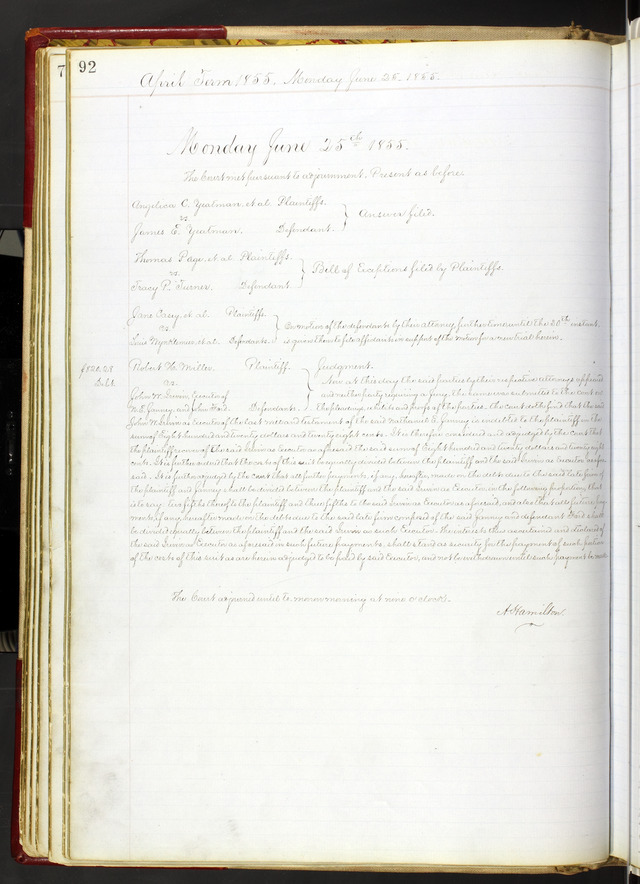 7
92
April Term 1855. Monday June 25. 1855.
Monday June 25th 1855.
The Court met pursuant to adjournment. Present as before.
Angelica C. Yeatman. et al. Plaintiffs.
vs.
James E. Yeatman. Defendant.
Answer filed.
Thomas Page, et al. Plaintiffs.
vs.
Tracy P. Turner. Defendant.
Bill of Exceptions filed by Plaintiffs.
Jane Casey, et al. Plaintiffs.
vs.
et al. Defendants.
On motion of the defendants by their attorney, further time until the 30th instant,
is given them to file affidavits in support of the motion for a new trial herein.
$820.28
Debt.
Robert H. Miller. Plaintiff.
vs.
John W. Executor of
N. B. Janney, and John Defendants.
Judgment.
Now at this day the said parties by their respective attorneys appeared
and neither party requiring a jury, the same was submitted to the Court on
the pleadings, exhibits and proofs of the parties. The court doth find that the said
John W. as Executor of the last will and testament of the said Nathaniel B. Janney is indebted to the plaintiff in the
sum of Eight hundred and twenty dollars and twenty eight cents. It is therefore considered and adjudged by the court that
the plaintiff recover of the said as Executor as aforesaid the said sum of Eight hundred and twenty dollars and twenty eight
cents. It is further ordered that the costs of this suit be equally divided between the plaintiff and the said as Executor as afore-
said. It is further adjudged by the Court that all further payments, if any, hereafter made on the debts due to the said late firm of
the plaintiff and Janney shall be divided between the plaintiff and the said as Executor, in the following proportions, that
is to say: two fifths thereof to the plaintiff and three fifths to the said as Executor as aforesaid, and also that all future pay-
ments, if any, hereafter made on the debts due to the said late firm composed of the said Janney and defendant shall
be divided equally between the plaintiff and the said as such Executor. The interest so ascertained and declared of
the said as Executor as aforesaid in such future payments, shall stand as security for the payment of such portion
of the costs of this suit as are herein adjudged to be paid by said Executor, and not be until such payment be made.
The Court adjourned until to-morrow morning at nine o'clock.
A. Hamilton